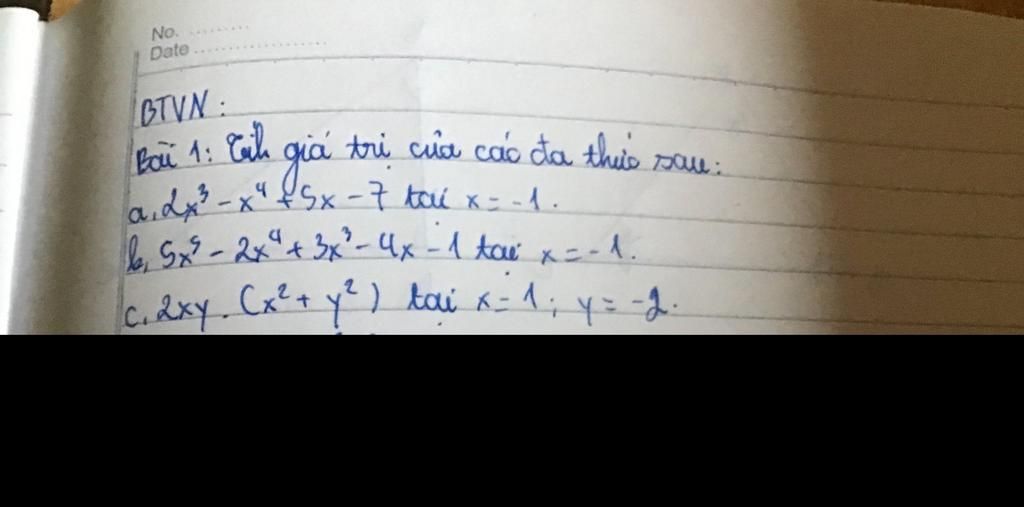 No. ..........
Date ....................
BTVN:
Bài 1: Tính giá trị của các đa thức sau:
a, 2x³ - x⁴ + 5x - 7 tại x = -1.
b, 5x⁵ - 2x⁴ + 3x³ - 4x - 1 tại x = -1.
c, 2xy. (x² + y²) tại x = 1; y = -2.